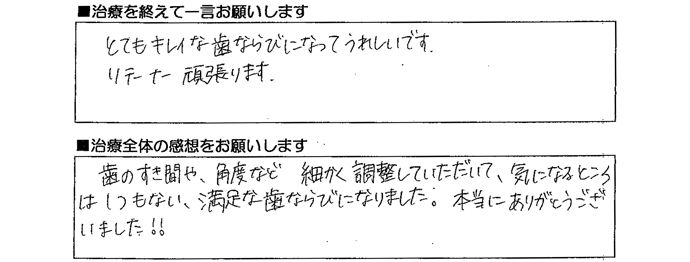 ■治療を終えて一言お願いします
とてもキレイな歯ならびになってうれしいです.
リテーナー 頑張ります.
■治療全体の感想をお願いします
歯のすき間や、角度など 細かく調整していただいて、気になるところ
は1つもない、満足な歯ならびになりました。本当にありがとうござ
いました!!